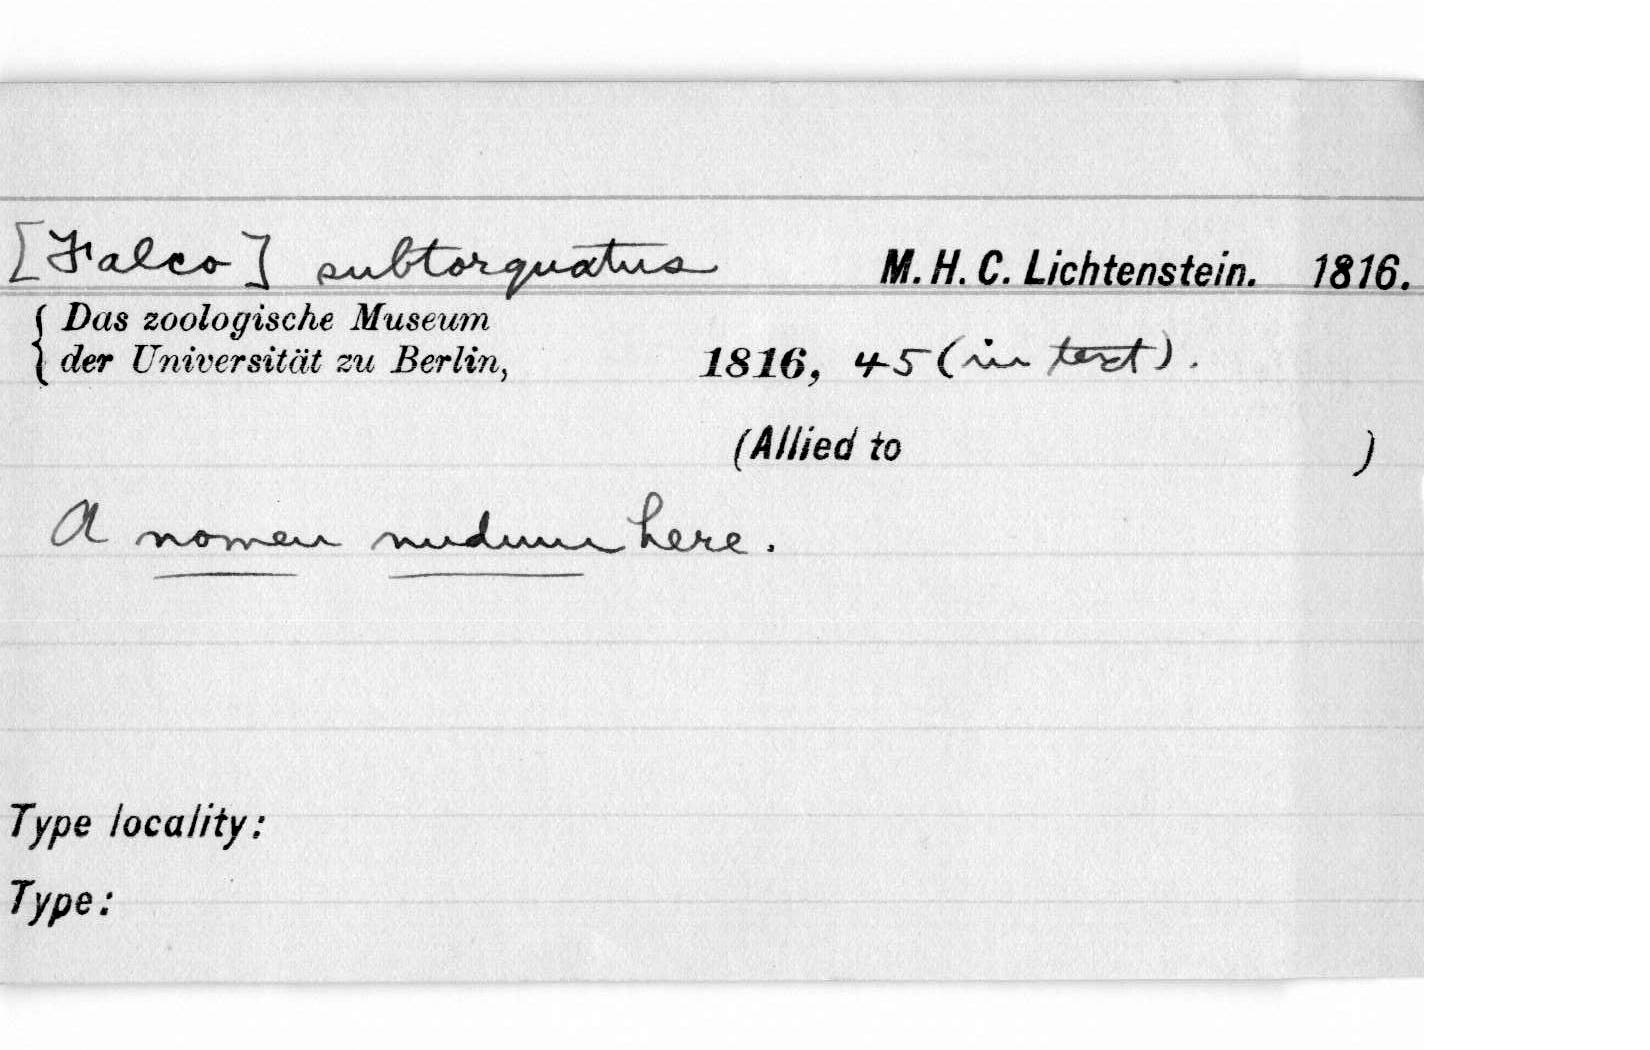 [Falco] subtorquatus M. H. C. Lichtenstein. 1816.
{ Das zoologische Museum
der Universität zu Berlin, 1816, 45 (in text).
(Allied to )
A nomen nudum here.
Type locality:
Type: